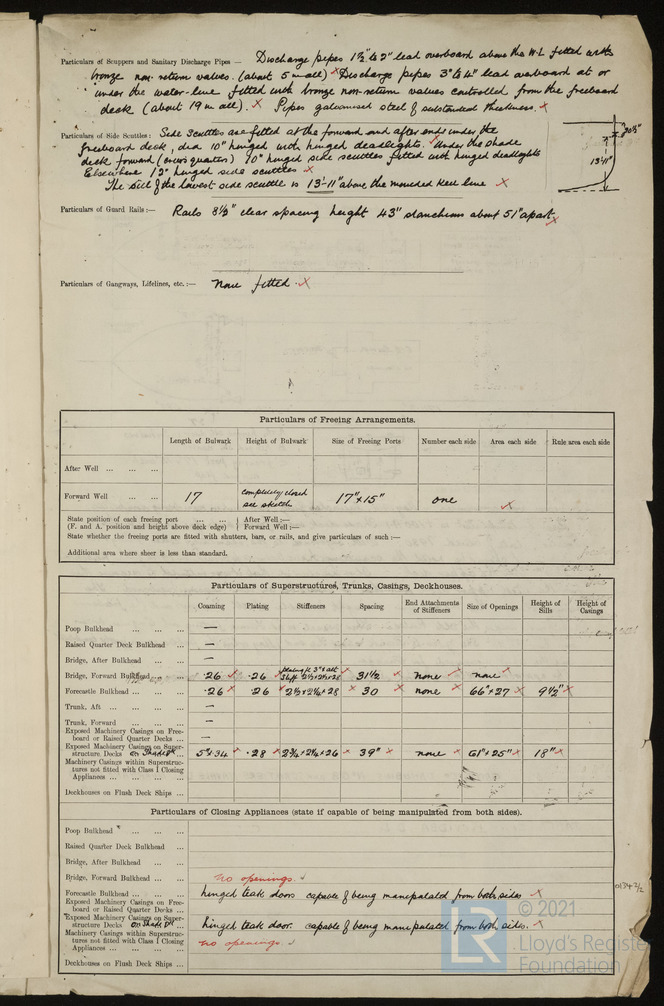 Particulars of Scuppers and Sanitary Discharge Pipes — Discharge pipes 1½" to 2" lead overboard above the W.L fitted with
bronze non-return valves. (about 5 in all) x Discharge pipes 3" to 4" lead overboard at or
under the water-line fitted with bronze non-return valves controlled from the freeboard
deck (about 19 in all). x Pipes galvanised steel of substantial thickness. x
Particulars of Side Scuttles: Side scuttles are fitted at the forward and after ends under the
freeboard deck, dia 10" hinged with hinged deadlights. Under the shade
deck forward (crew's quarters) 10" hinged side scuttles fitted with hinged deadlights
Elsewhere 12" hinged side scuttles x
The sill of the lowest side scuttle is 13'-11" above the moulded keel line x
13'11"
Particulars of Guard Rails:— Rails 8½" clear spacing height 43" stanchions about 51" apart. x
Particulars of Gangways, Lifelines, etc.:— None fitted. x
Particulars of Freeing Arrangements.
Length of Bulwark Height of Bulwark Size of Freeing Ports Number each side Area each side Rule area each side
After Well ... ... ...
Forward Well ... ... 17 completely closed see sketch 17" x 15" one x
State position of each freeing port ... ... After Well :—
(F. and A. position and height above deck edge) Forward Well :—
State whether the freeing ports are fitted with shutters, bars, or rails, and give particulars of such :—
Additional area where sheer is less than standard.
Particulars of Superstructures, Trunks, Casings, Deckhouses.
Coaming Plating Stiffeners Spacing End Attachments of Stiffeners Size of Openings Height of Sills Height of Casings
Poop Bulkhead ... ... ... —
Raised Quarter Deck Bulkhead ... ... —
Bridge, After Bulkhead ... ... ... —
Bridge, Forward Bulkhead ... ... .26 .26 31½ none none
Forecastle Bulkhead ... ... ... .26 .26 2½ x 2½ x .28 30 none 66" x 27 9½"
Trunk, Aft ... ... ... —
Trunk, Forward ... ... ... —
Exposed Machinery Casings on Free-
board or Raised Quarter Decks ... —
Exposed Machinery Casings on Super-
structure Decks on Shade Dk 5" x .34 .28 2¾ x 2¼ x .26 39" none 61" x 25" 18"
Machinery Casings within Superstruc-
tures not fitted with Class I Closing
Appliances ... ... ... ...
Deckhouses on Flush Deck Ships ...
Particulars of Closing Appliances (state if capable of being manipulated from both sides).
Poop Bulkhead ... ... ...
Raised Quarter Deck Bulkhead ... ...
Bridge, After Bulkhead ... ... ...
Bridge, Forward Bulkhead ... ... no openings.
Forecastle Bulkhead ... ... ... hinged teak doors capable of being manipulated from both sides x
Exposed Machinery Casings on Free-
board or Raised Quarter Decks ...
Exposed Machinery Casings on Super-
structure Decks on Shade Dk hinged teak door. capable of being manipulated from both sides. x
Machinery Casings within Superstruc-
tures not fitted with Class I Closing
Appliances ... ... ... no openings.
Deckhouses on Flush Deck Ships ...
© 2021
LR
Lloyd's Register
Foundation